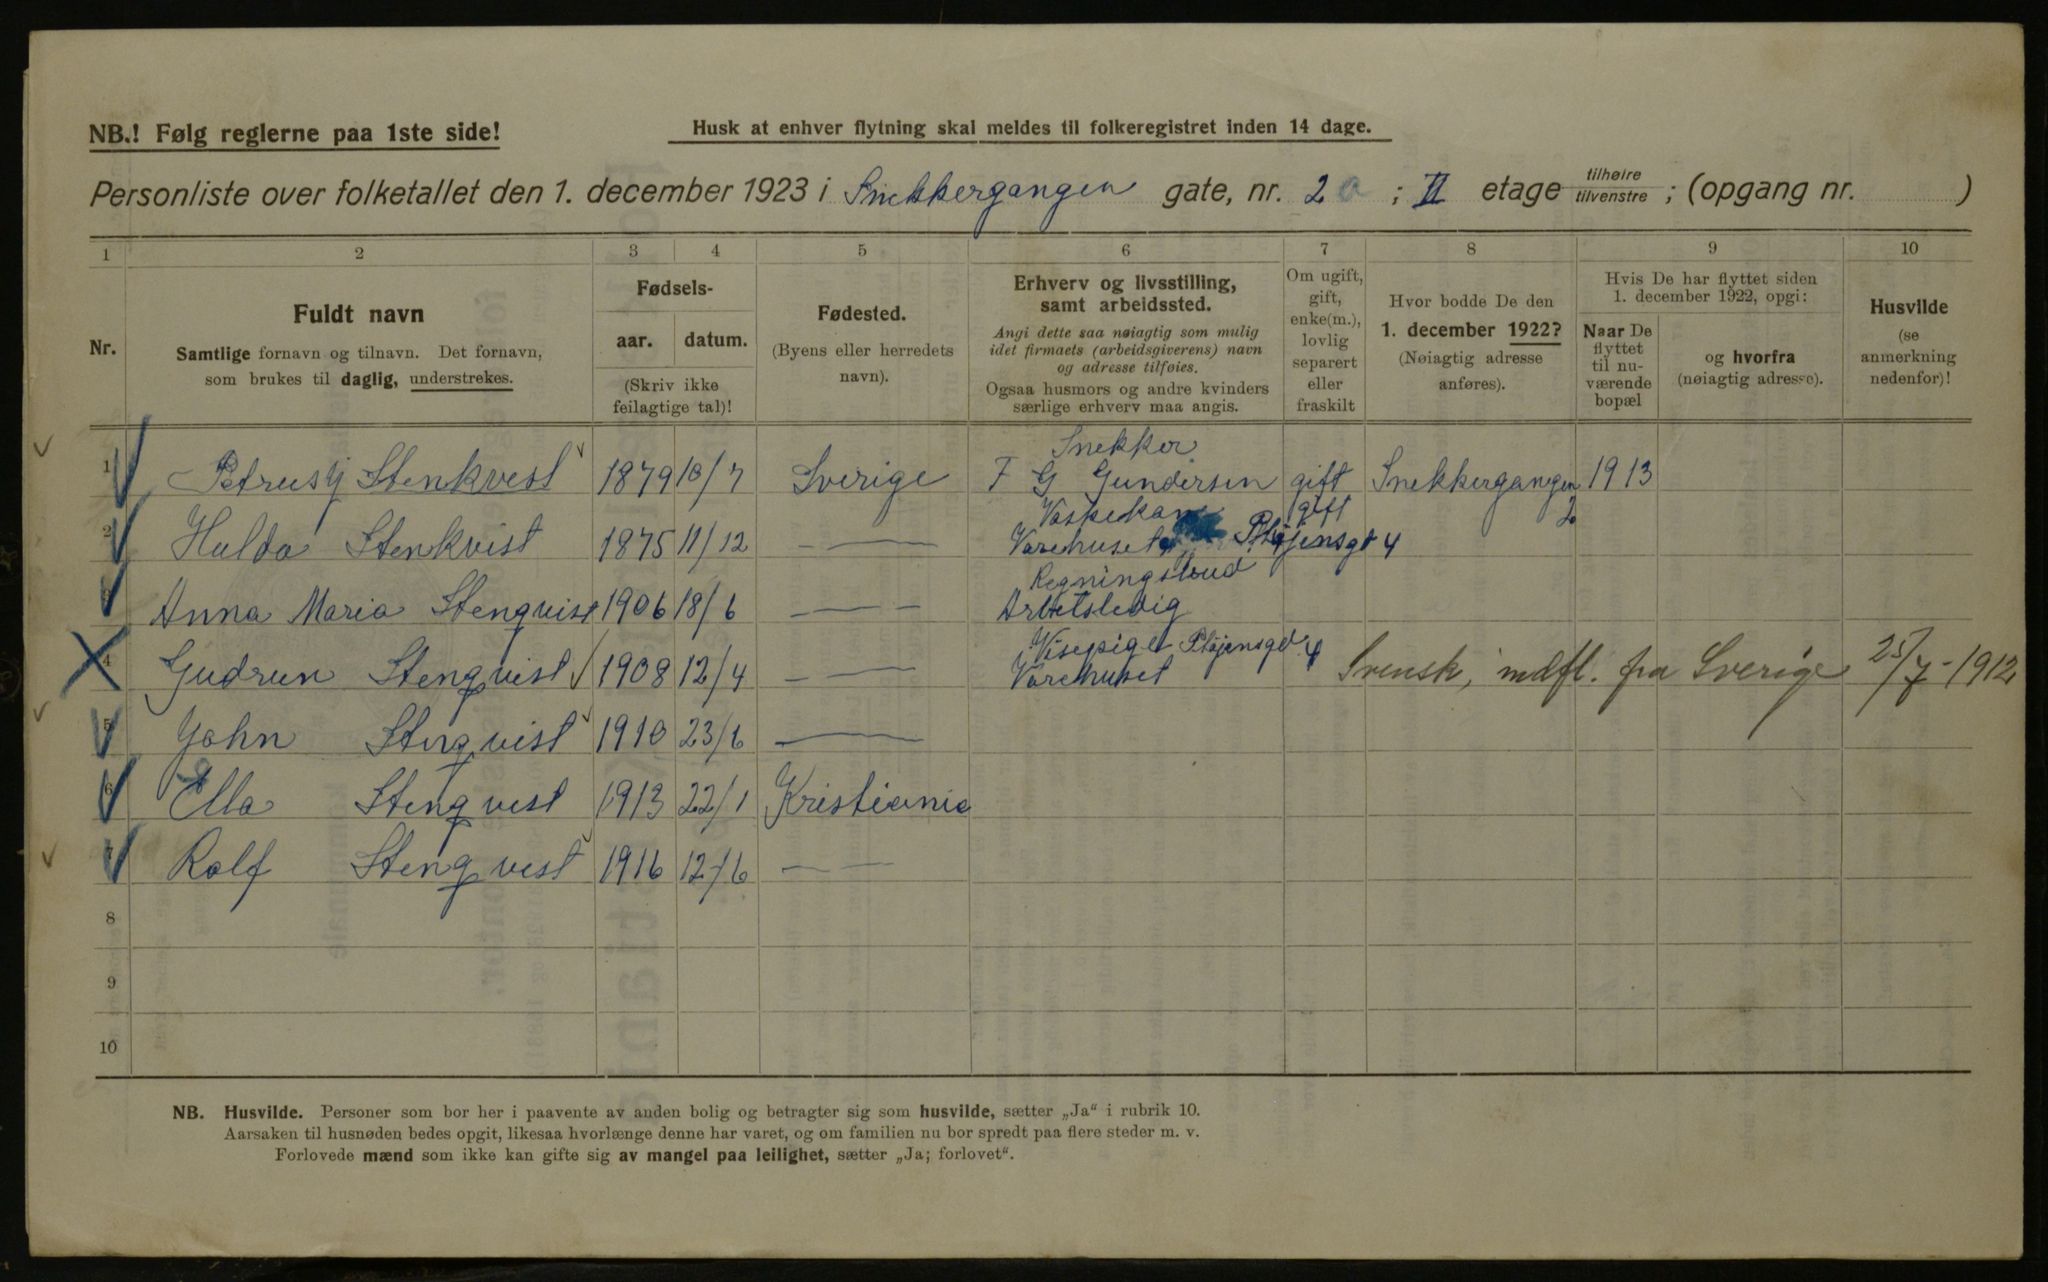 NB.! Følg reglerne paa 1ste side!
Husk at enhver flytning skal meldes til folkeregistret inden 14 dage.
Personliste over folketallet den 1. december 1923 i Snekkergangen gate, nr. 2a ; II etage tilhøire tilvenstre ; (opgang nr. )
1 2 3 4 5 6 7 8 9 10
Nr.
Fuldt navn
Samtlige fornavn og tilnavn. Det fornavn,
som brukes til daglig, understrekes.
Fødsels-
aar. datum.
(Skriv ikke
feilagtige tal)!
Fødested.
(Byens eller herredets
navn).
Erhverv og livsstilling,
samt arbeidssted.
Angi dette saa nøiagtig som mulig
idet firmaets (arbeidsgiverens) navn
og adresse tilføies.
Ogsaa husmors og andre kvinders
særlige erhverv maa angis.
Om ugift,
gift,
enke(m.),
lovlig
separert
eller
fraskilt
Hvor bodde De den
1. december 1922?
(Nøiagtig adresse
anføres).
Hvis De har flyttet siden
1. december 1922, opgi:
Naar De
flyttet
til nu-
værende
bopæl
og hvorfra
(nøiagtig adresse).
Husvilde
(se
anmerkning
nedenfor)!
Snekker
1 Petrus J Stenkvest 1879 10/7 Sverige F G Gundersen gift Snekkergangen 2 1913
Vaskekane gift
2 Hulda Stenkvist 1875 11/12 — — Varehuset Pløjensgd 4
Regningsbud
3 Anna Maria Stenqvist 1906 18/6 — — Arbetsledig
Visepige Pløjensgd 4
4 Gudrun Stenqvist 1908 12/4 — — Varehuset Svensk, indfl. fra Sverige 25/7-1912
5 John Stenqvist 1910 23/6 —
6 Ella Stenqvest 1913 22/1 Kristiania
7 Rolf Stenqvest 1916 12/6 — —
8
9
10
NB. Husvilde. Personer som bor her i paavente av anden bolig og betragter sig som husvilde, sætter „Ja“ i rubrik 10.
Aarsaken til husnøden bedes opgit, likesaa hvorlænge denne har varet, og om familien nu bor spredt paa flere steder m. v.
Forlovede mænd som ikke kan gifte sig av mangel paa leilighet, sætter „Ja; forlovet“.